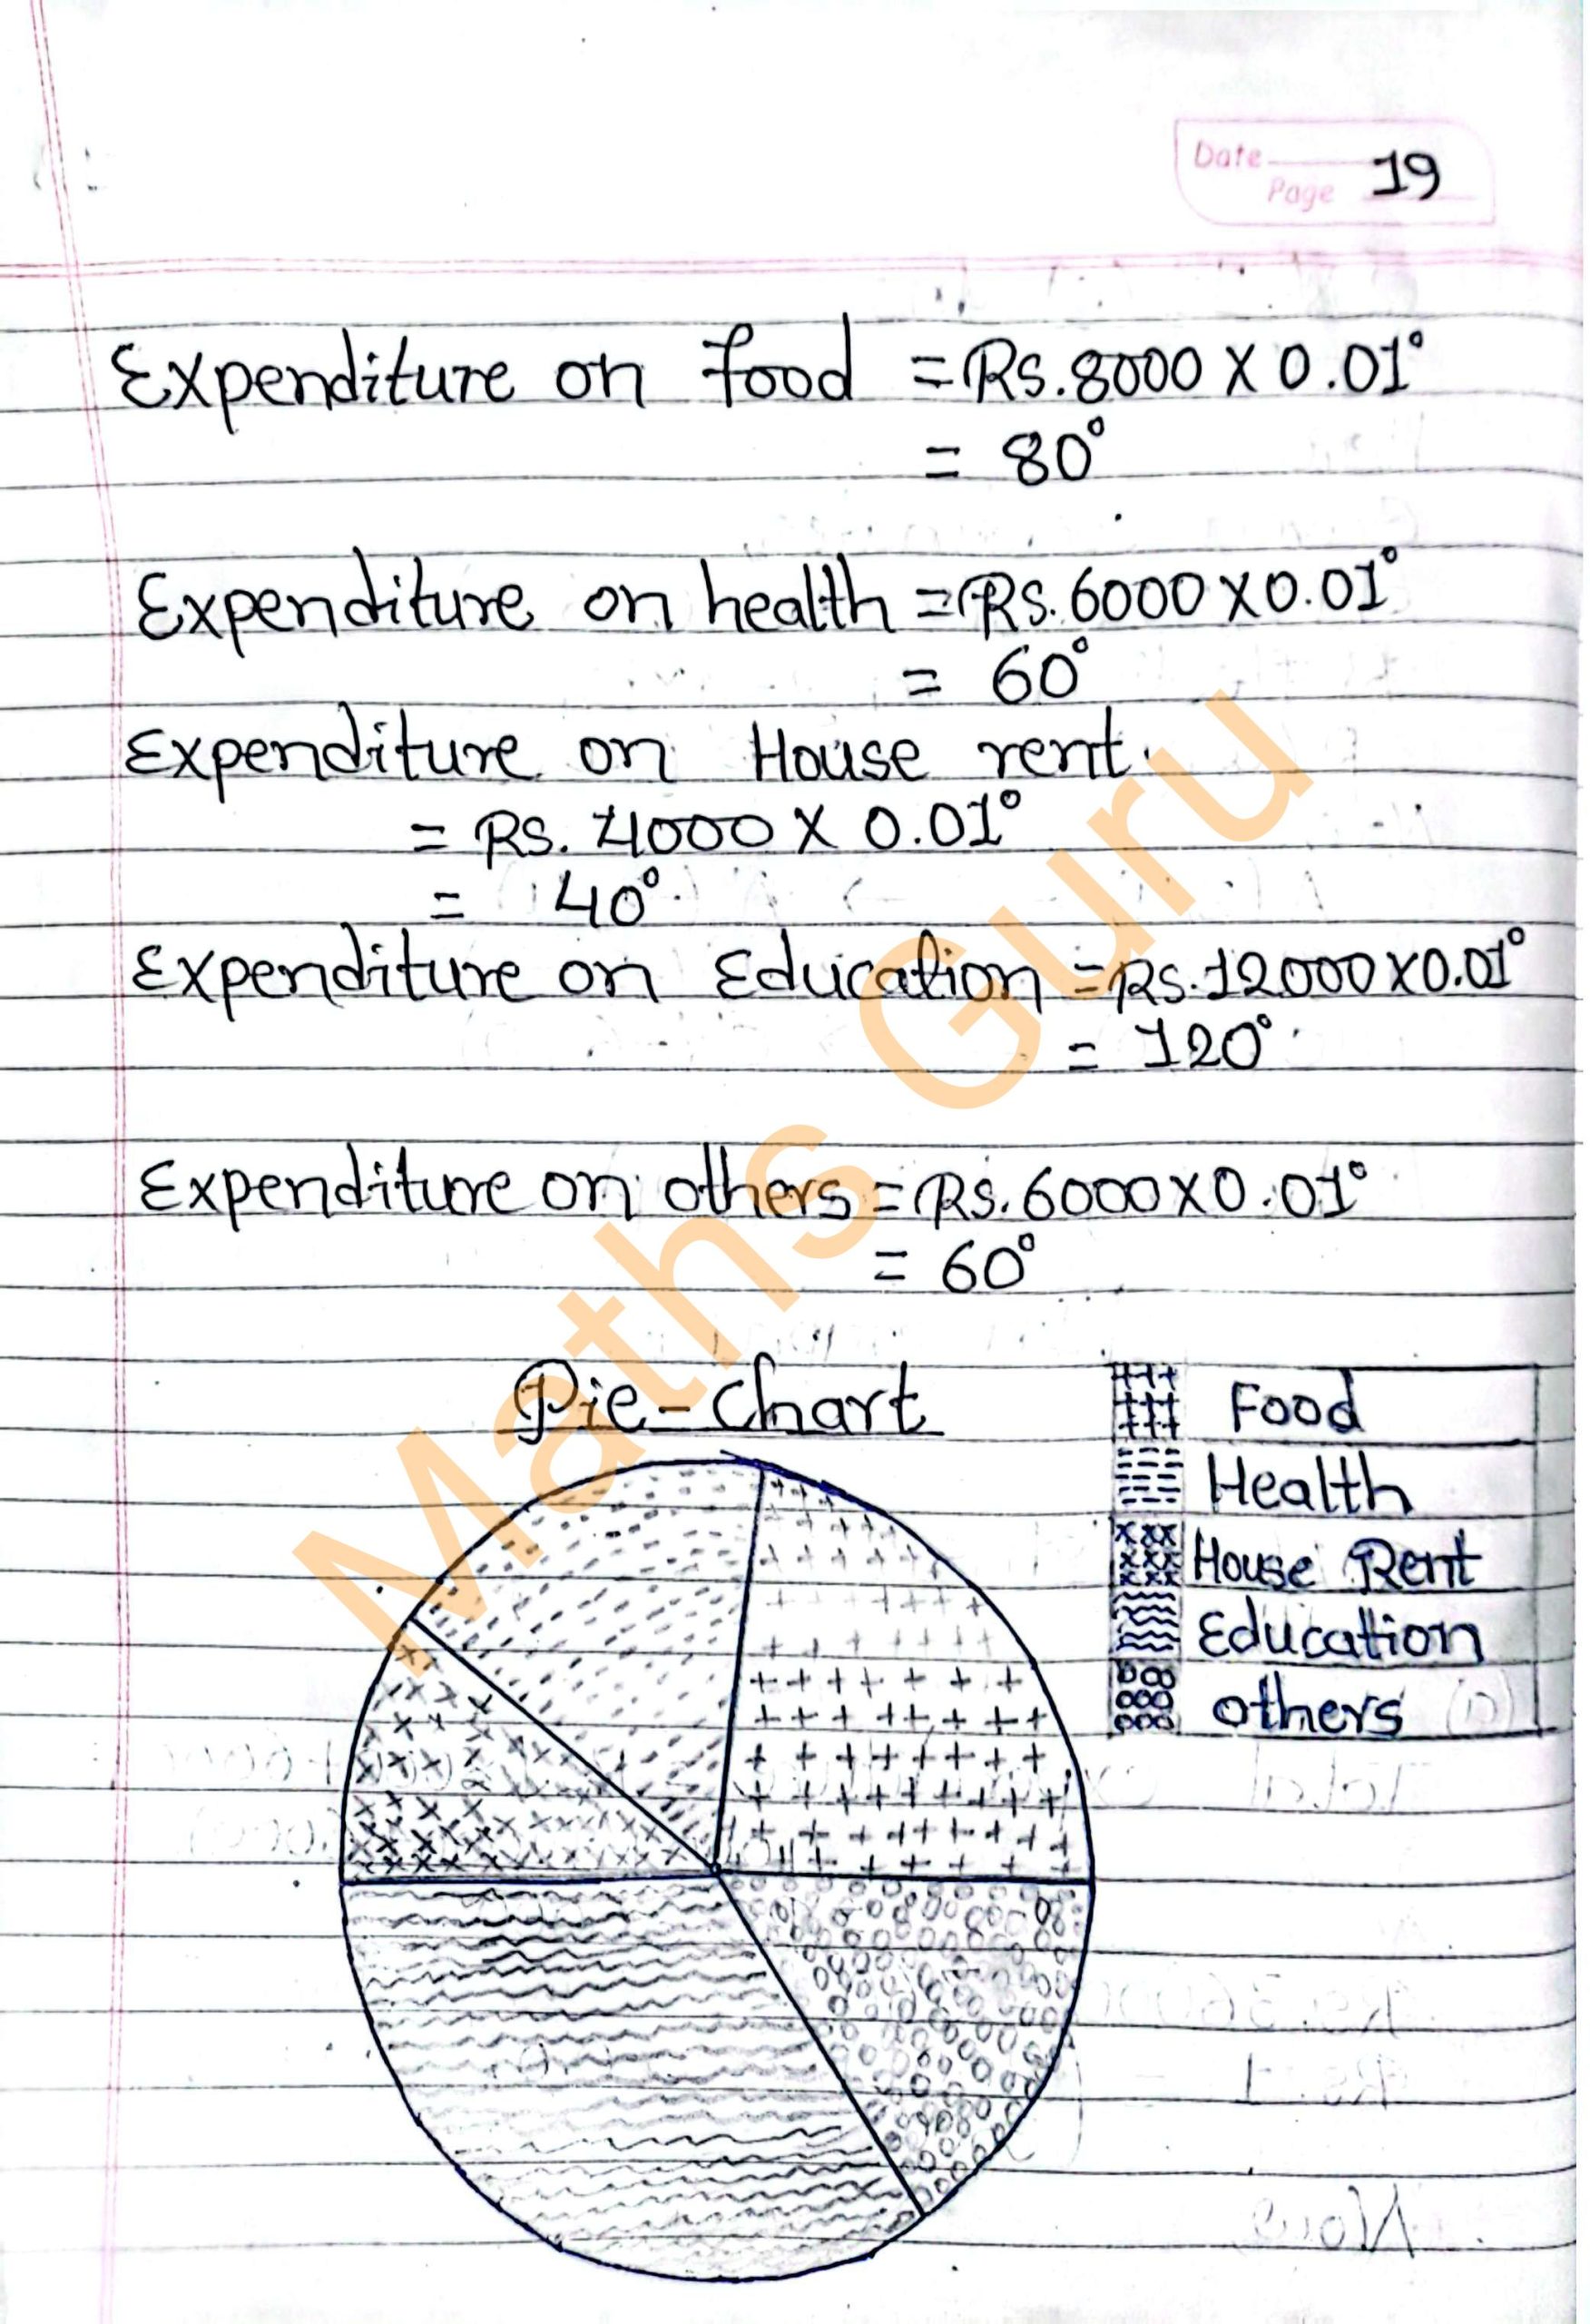 Date
Page 19
Expenditure on food = Rs. 8000 X 0.01°
= 80°
Expenditure on health = Rs. 6000 X 0.01°
= 60°
Expenditure on House rent.
= Rs. 4000 X 0.01°
= 40°
Expenditure on Education = Rs. 12000 X 0.01°
= 120°
Expenditure on others = Rs. 6000 X 0.01°
= 60°
Pie-Chart
Food
Health
House Rent
Education
others
Maths Guru